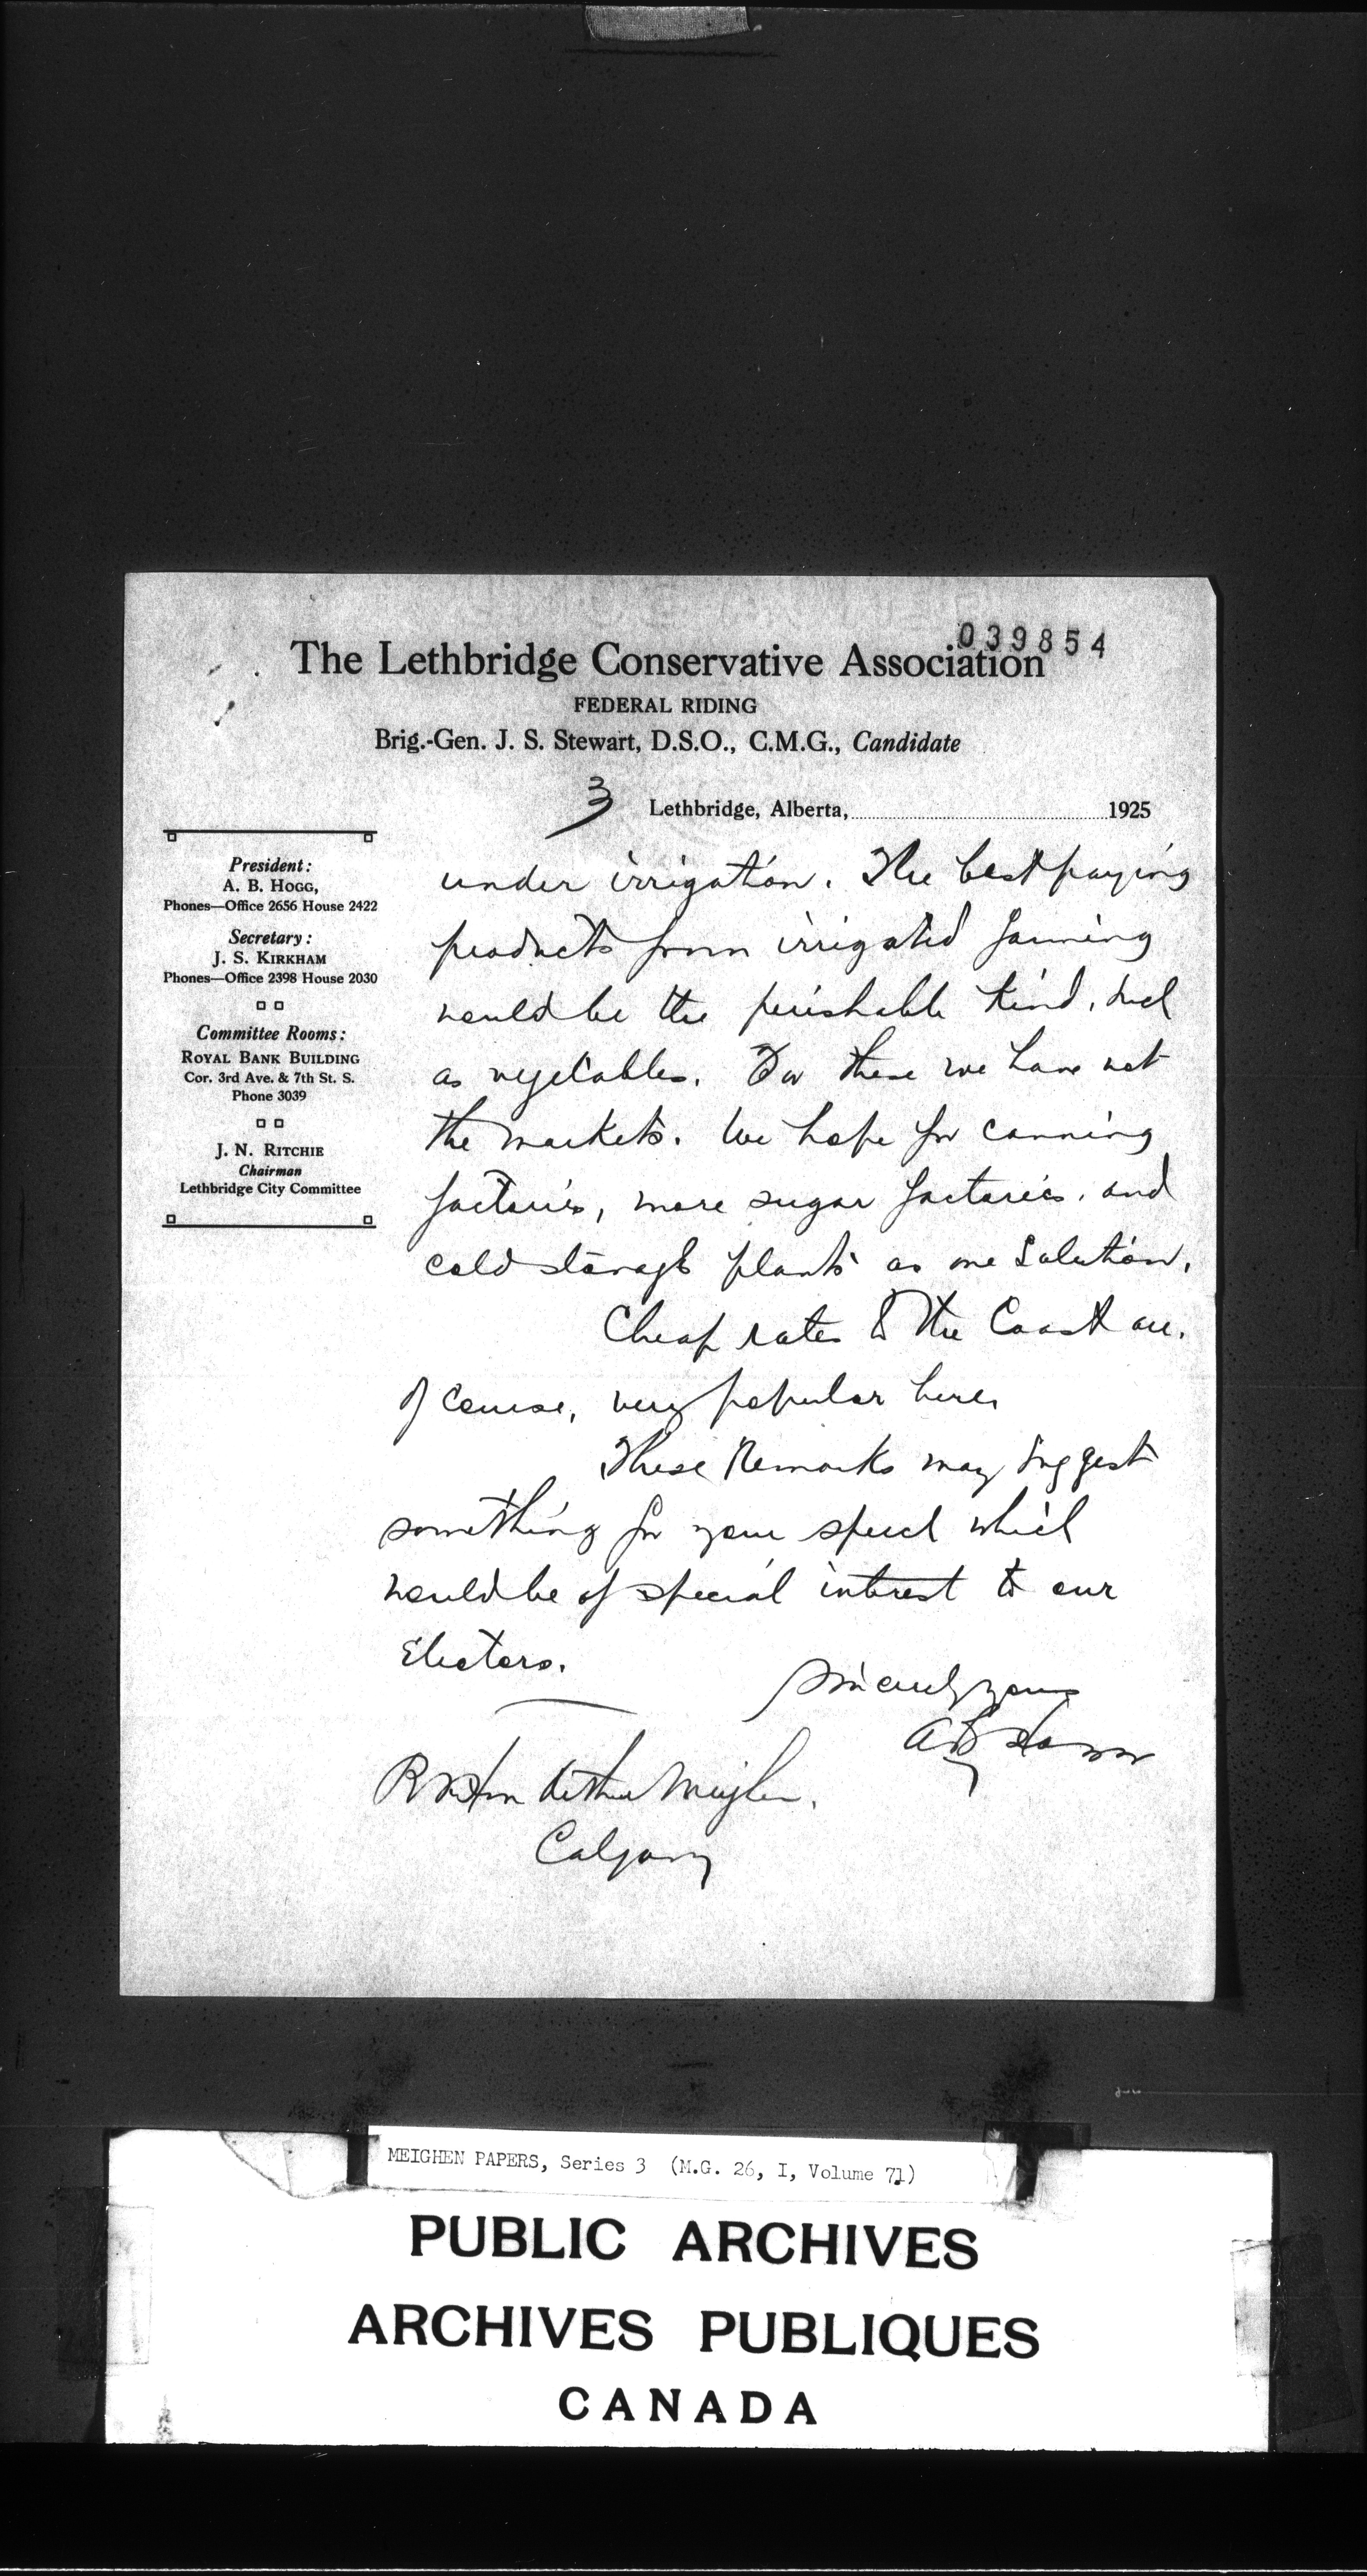 039854
The Lethbridge Conservative Association
FEDERAL RIDING
Brig.-Gen. J. S. Stewart, D.S.O., C.M.G., Candidate
3 Lethbridge, Alberta, 1925
President:
A. B. HOGG,
Phones—Office 2656 House 2422
Secretary:
J. S. KIRKHAM
Phones—Office 2398 House 2030
Committee Rooms:
ROYAL BANK BUILDING
Cor. 3rd Ave. & 7th St. S.
Phone 3039
J. N. RITCHIE
Chairman
Lethbridge City Committee
under irrigation. The best paying
products from irrigated farming
would be the perishable kind, such
as vegetables. For these we have not
the markets. We hope for canning
factories, more sugar factories, and
cold storage plants as one solution.
Cheap rates to the Coast are,
of course, very popular here.
These Remarks may suggest
something for your speech which
would be of special interest to our
Electors.
Sincerely yours
A B Hogg
Rt Hon Arthur Meighen,
Calgary
MEIGHEN PAPERS, Series 3 (M.G. 26, I, Volume 71)
PUBLIC ARCHIVES
ARCHIVES PUBLIQUES
CANADA